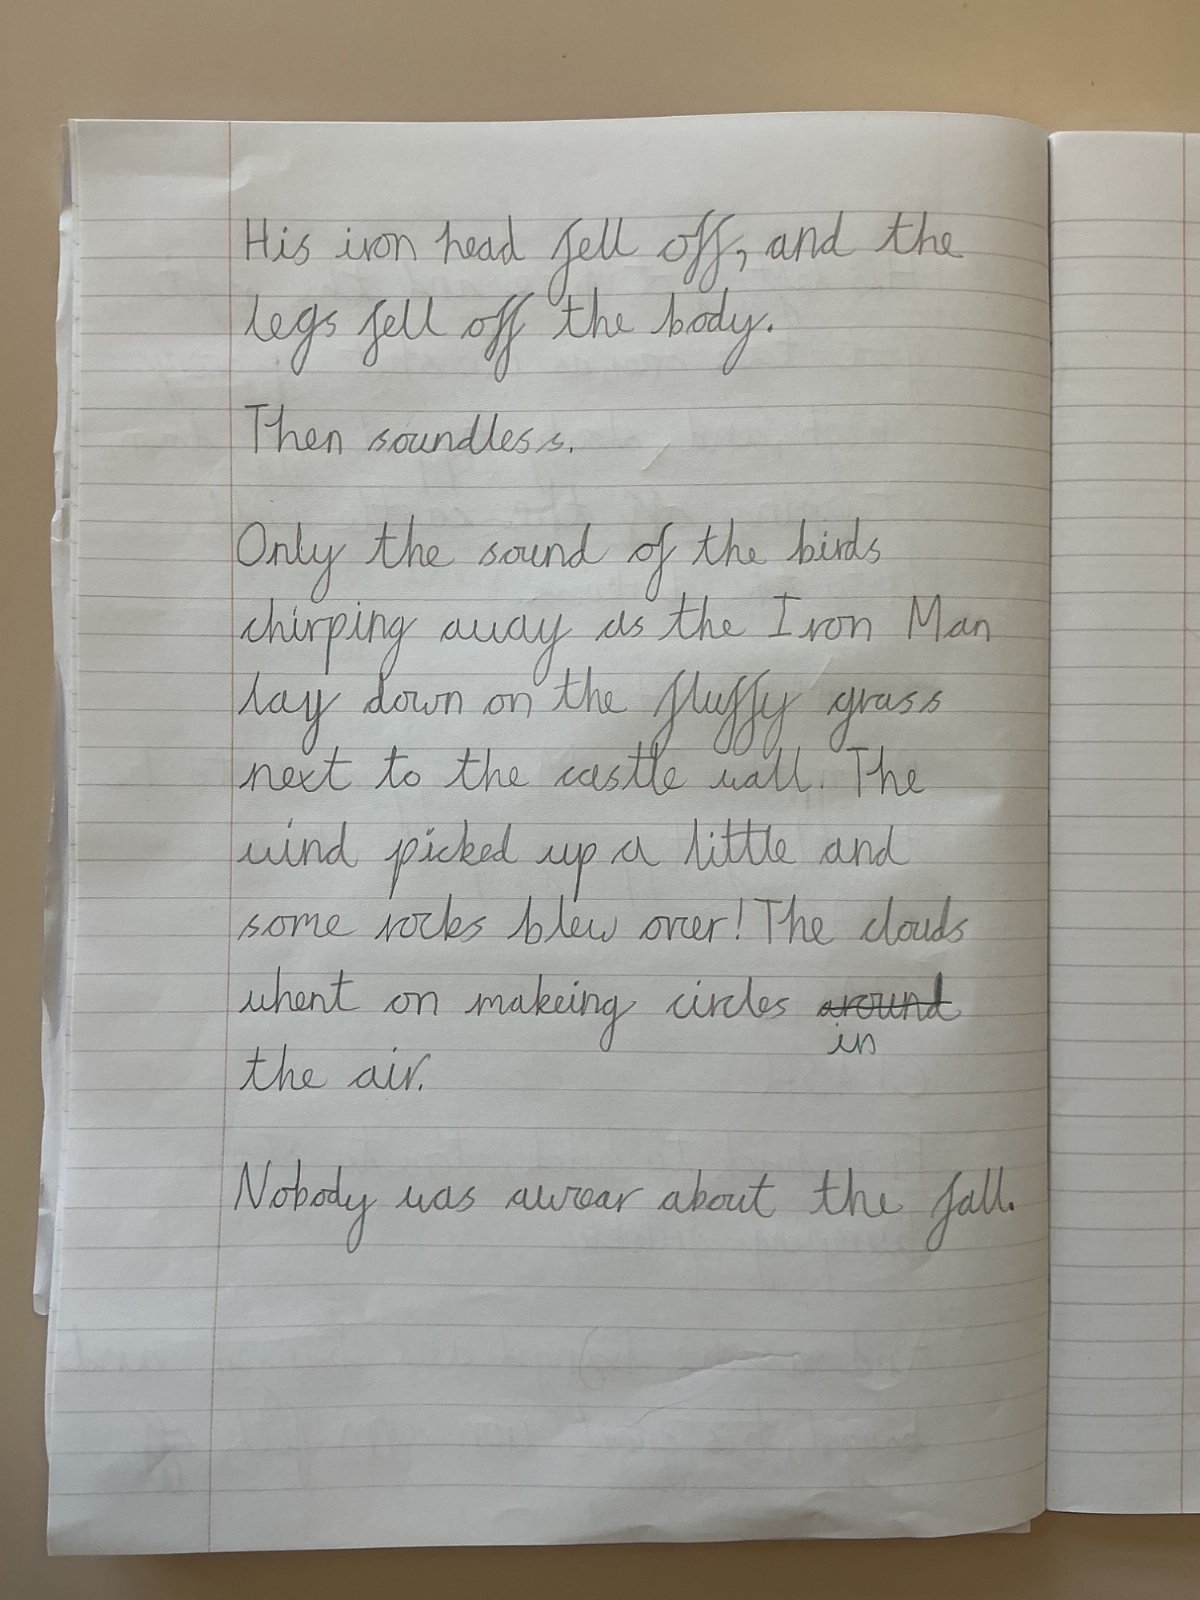 His iron head fell off, and the
legs fell off the body.
Then soundless.
Only the sound of the birds
chirping away as the Iron Man
lay down on the fluffy grass
next to the castle wall. The
wind picked up a little and
some rocks blew over! The clouds
whent on makeing circles around
in
the air.
Nobody was awear about the fall.